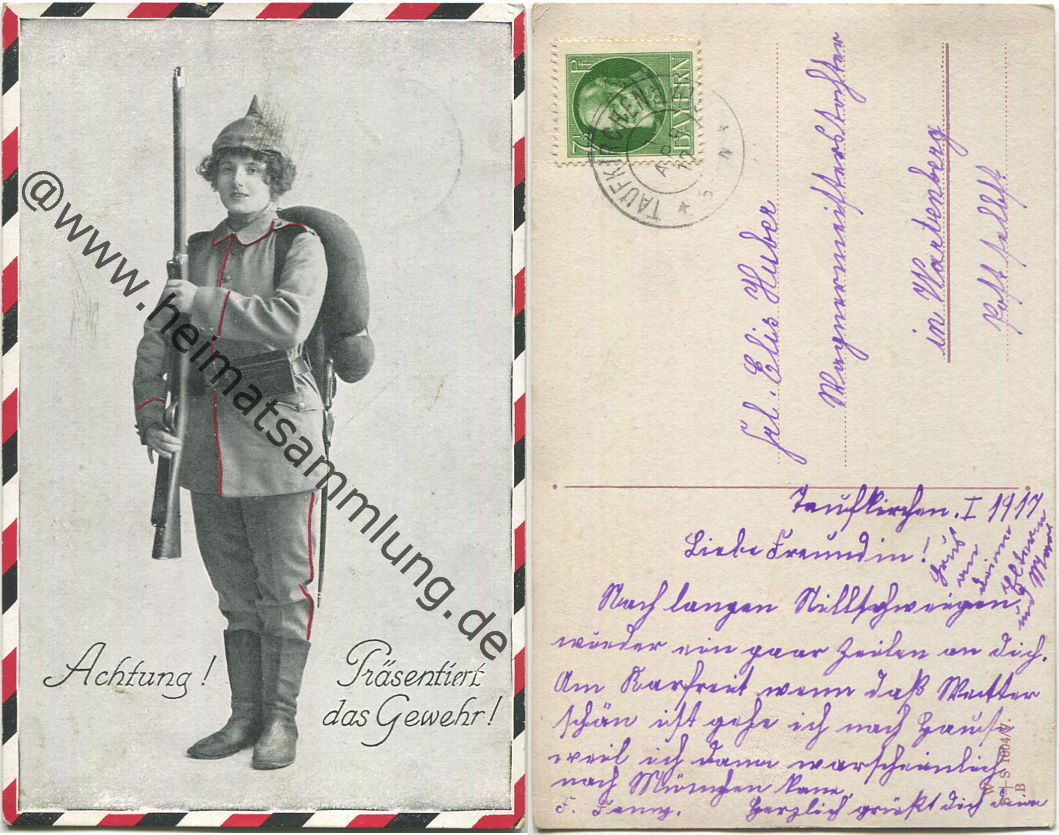 Achtung!
Präsentiert
das Gewehr!
@www.heimatsammlung.de
7½ Pf
BAYERN
TAUFKIRCHEN
Frl. Elis Huber
Wagnermeisterstochter
in Wartenberg
Post selbst
Taufkirchen. I 1917
Liebe Freundin!
Nach langen Stillschweigen
wieder ein paar Zeilen an dich.
Am Karfreit wenn daß Wetter
schön ist gehe ich nach Hause
weil ich dann warscheinlich
nach München kann.
F. Fanny. Herzlich grüßt dich deine
Gruß
an
deine
Eltern
und Mari